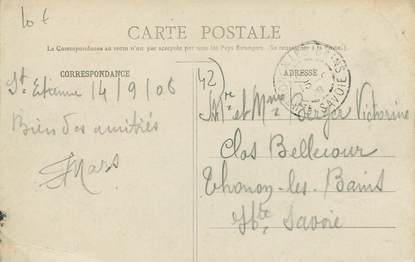 10 €
CARTE POSTALE
La Correspondance au verso n'est pas acceptée par tous les Pays Etrangers. (Se renseigner à la Poste).
CORRESPONDANCE
ADRESSE
42
St Etienne 14/9/06
Bien des amitiés
Mars
Mr et Mme Berger Victorine
Clos Bellecour
Thonon-les-Bains
Hte Savoie
SAVOIE